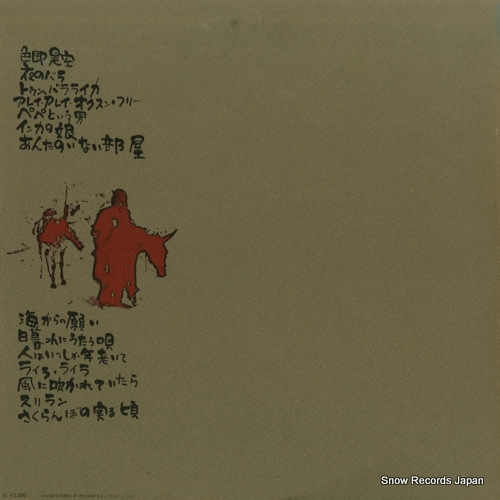 色即是空
夜のバラ
トゥム・バラライカ
アレイ・アレイ・オクスン・フリー
ペペという男
インカの娘
あんたのいない部屋
海からの願い
日暮れにうたう唄
人はいつしか年老いて
ライラ・ライラ
風に吹かれていたら
スリラン
さくらんぼの実る頃
Snow Records Japan